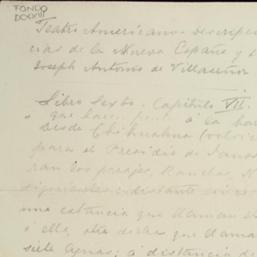 FONDO
DCXVIII
Teatro Americano: descripci
cias de la Nueva España y D
Joseph Antonio de Villaseñor
Libro Sexto. Capítulo VII.
que hace frente á la
desde Chihuahua
para el Presidio de Janos
ran los parajes, Ranchos,
siguientes: distante
una estancia que llaman
á ella, otra dicha que llama
siete leguas; á distancia de